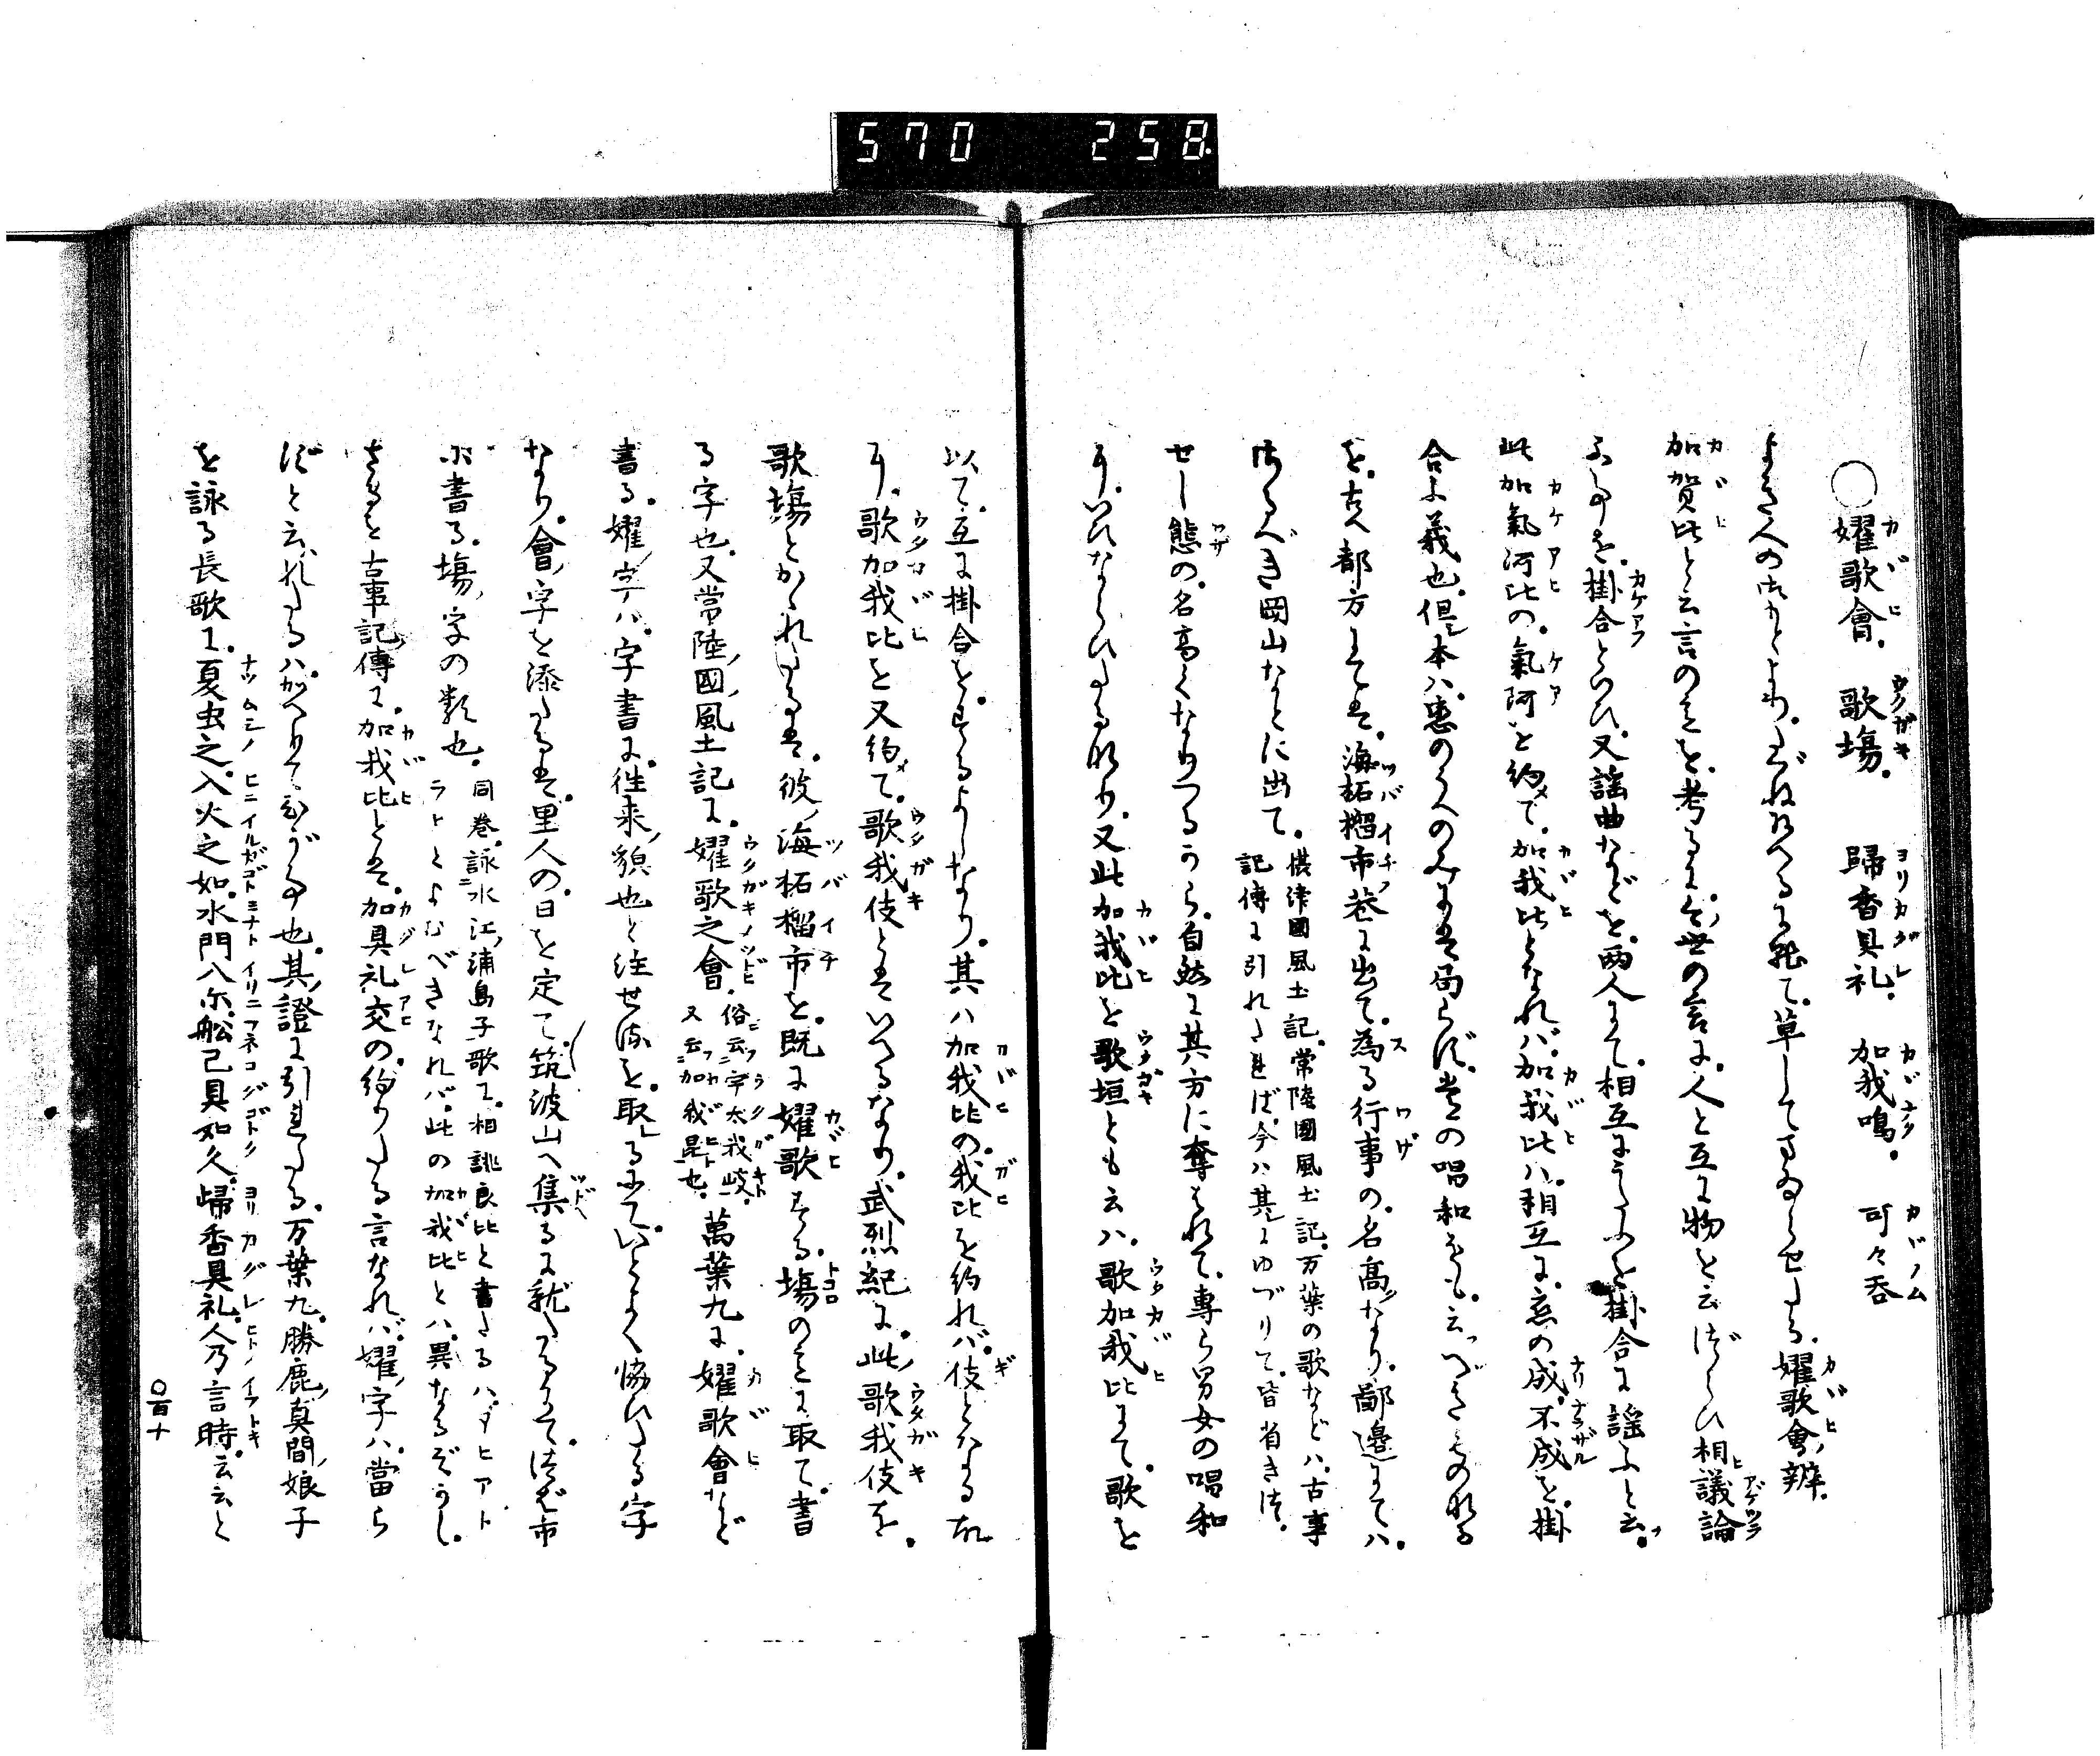 570 258
○嬥歌會。 歌場。 歸香具礼。 加我鳴。 可々呑
嬥歌會ノ辨。
加賀比と云言のことを。考るに。今世の言に。人と互に物を云 相議論
ふ事を。掛合といひ。又謡曲などを。両人にて。相互にうたふを掛合に謡ふと云。
此加氣阿比の。氣阿を約めて。加我比となれバ。加我比ハ。相互に。恋の成。不成を。掛
合ふ義也。但し本ハ。恋のうへのみには局らず。常の唱和をも。云つべきものなる
を。古へ都方にては。海柘榴市ノ巷に出て。為る行事の。名高くなり。鄙邊にてハ。
べき岡山などに出て。
摂津國風土記。常陸國風土記。万葉の歌などハ。古事
記傳に引れたれば。今ハ其にゆづりて。皆省きつ。
せし態の。名高くなりつるから。自然に其方に奪はれて。専ら男女の唱和
いひならひたるなり。又此加我比を歌垣とも云ハ。歌加我比にて。歌を
以て。互に掛合をするよしなり。其ハ加我比の。我比を約れバ。伎となるな
り。歌加我比を又約めて。歌我伎とはいへるなり。武烈紀に。此ノ歌我伎を。
歌場とかかれたるは。彼ノ海柘榴市を。既に嬥歌する。場のことに取て。書
る字也。又常陸ノ國ノ風土記に。嬥歌之會。
俗ニ云フ宇太我岐ト。
又云フ加我毘ト也。
萬葉九に。嬥歌會など
書る。嬥ノ字ハ。字書に。往来ノ貌也と注せるを。取しるにて。いとよく協ひたる字
なり。會ノ字を添たるは。里人の。日を定て。筑波山へ集るに就たるにて。つば市
に書る。場ノ字の類也。
同巻。詠水江ノ浦島子歌に。相誂良比と書たるハ。アヒアト
ラヒとよむべきなれバ。此の加我比とハ。異なるぞかし。
さきを古事記ノ傳に。加我比とは。加具礼交の。約りたる言なれバ。嬥ノ字ハ。當ら
ずと云れたるハ。かへりてひが事也。其ノ證に引れたる。万葉九。勝鹿ノ真間ノ娘子
を詠る長歌に。夏虫之。入火之如。水門入尓。舩己具如久。歸香具礼。人乃言時。云云と
○百十